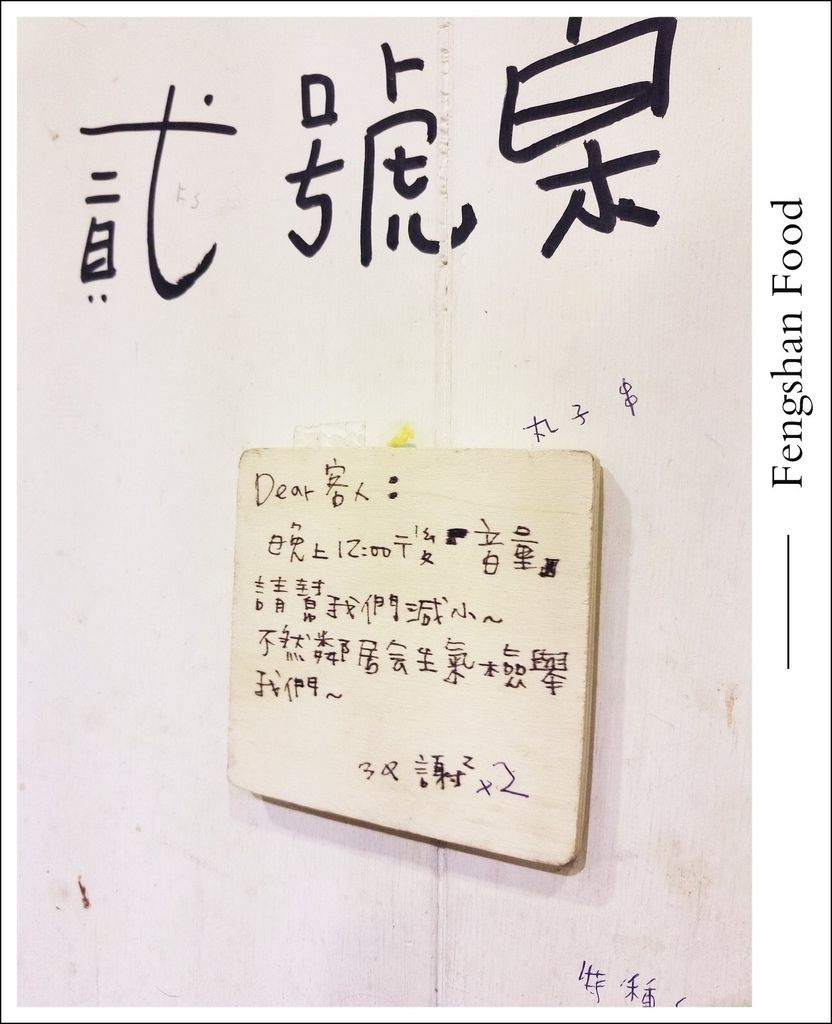 貳號桌
丸子串
Dear 客人：
晚上12:00後『音量』
請幫我們減小~
不然鄰居会生氣檢舉
我們~
3Q 謝² x2
特種
Fengshan Food